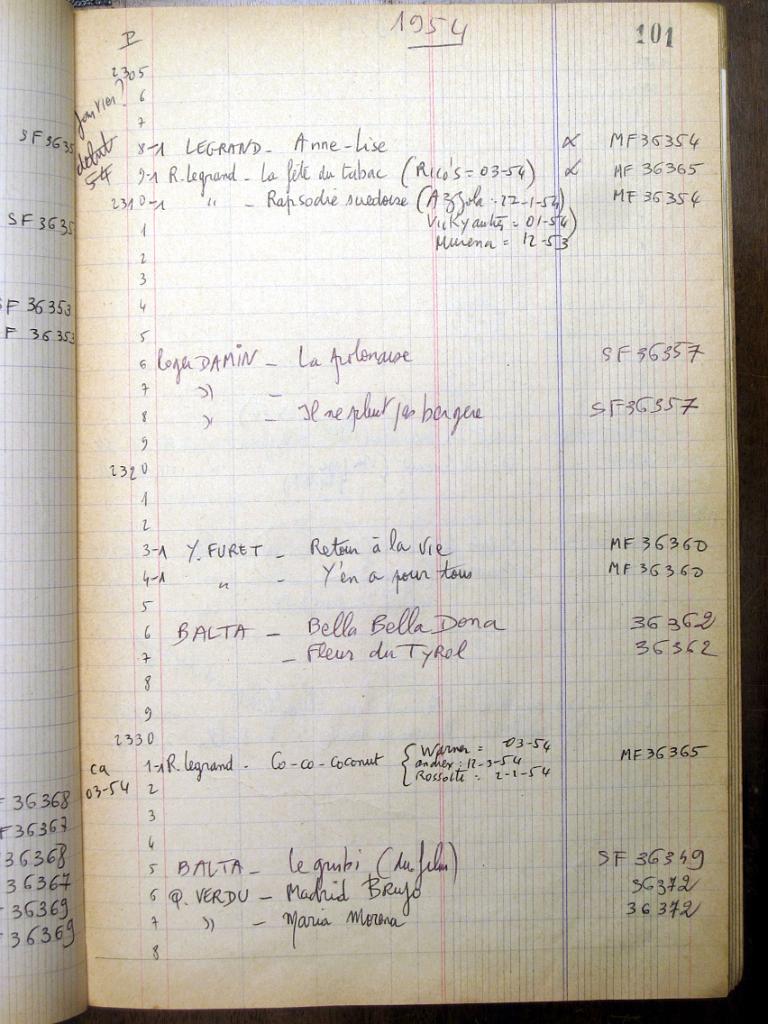 1954
101
P
2305
janvier?
6
7
début
54
8-1 LEGRAND - Anne-Lise α MF36354
9-1 R. Legrand - La fête du tabac (Rico's = 03-54) α MF 36365
2310-1 " - Rapsodie suedoise (Azzola = 22-1-54) MF 36354
1 Vicky autier = 01-54)
Murena = 12-53
2
3
4
5
6 Roger DAMIN - La polonaise SF36357
7 " -
8 " - Il ne pleut pas bergere SF36357
9
2320
1
2
3-1 Y. FURET - Retour à la vie MF 36360
4-1 " - Y'en a pour tous MF 36360
5
6 BALTA - Bella Bella Dona 36362
7 - Fleur du Tyrol 36362
8
9
2330
ca
03-54
1-1 R. Legrand - Co-co-coconut { Warner = 03-54 MF36365
andrex : 12-3-54
2
3
4
5 BALTA - Le grisbi (du film) SF 36349
6 Q. VERDU - Madrid Brujo 36372
7 " - Maria Morena 36372
8
SF3635
SF3635
F 36353
F 36353
F 36368
F36367
36368
36367
36369
36369